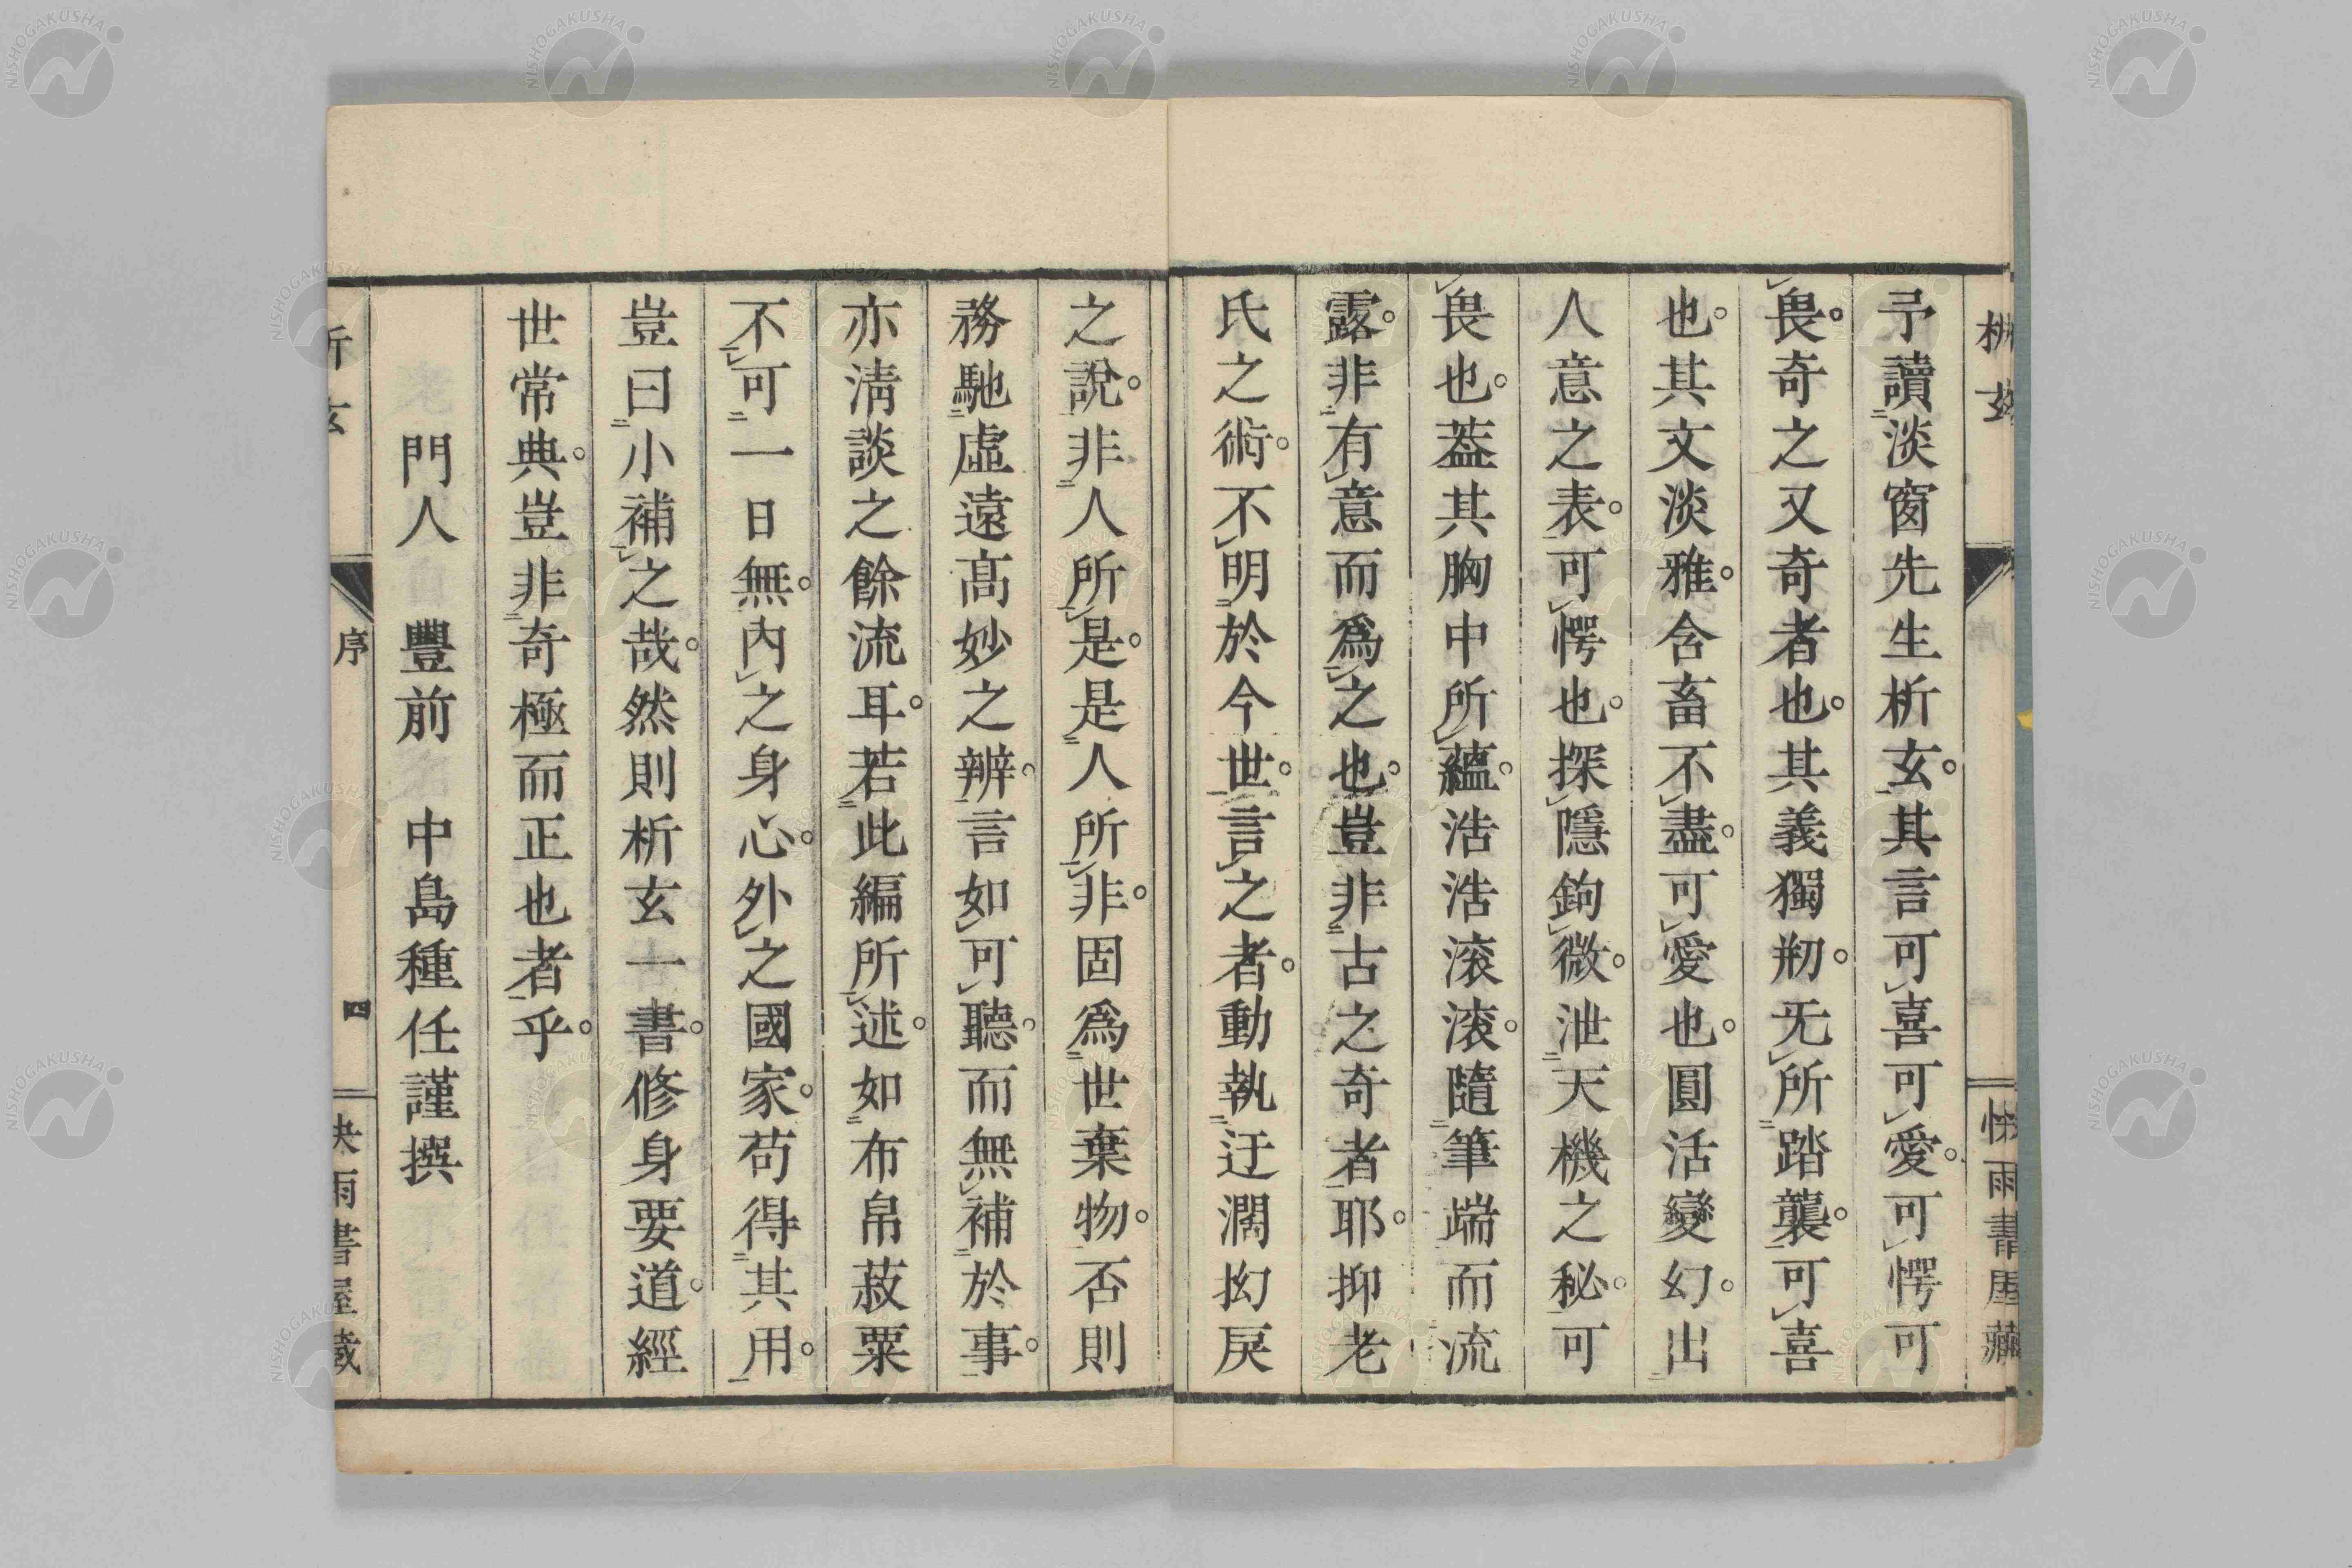 予讀淡窗先生析玄。其言可喜可愛。可愕可
畏。奇之又奇者也。其義獨刱。旡所踏襲。可喜
也。其文淡雅。含畜不盡。可愛也。圓活變幻。出
人意之表。可愕也。探隱鉤微。泄天機之秘。可
畏也。葢其胸中所蘊。浩浩滚滚。隨筆端而流
露。非有意而爲之也。豈非古之奇者耶。抑老
氏之術。不明於今世。言之者。動執迂濶抝戻
之說。非人所是。是人所非。固爲世棄物。否則
務馳虛遠高妙之辨。言如可聽。而無補於事。
亦淸談之餘流耳。若此編所述。如布帛菽粟
不可一日無。內之身心。外之國家。苟得其用。
豈曰小補之哉。然則析玄一書。修身要道。經
世常典。豈非奇極而正也者乎。
門人 豐前 中島種任謹撰
析玄
序
四
快雨書屋藏
NISHOGAKUSHA